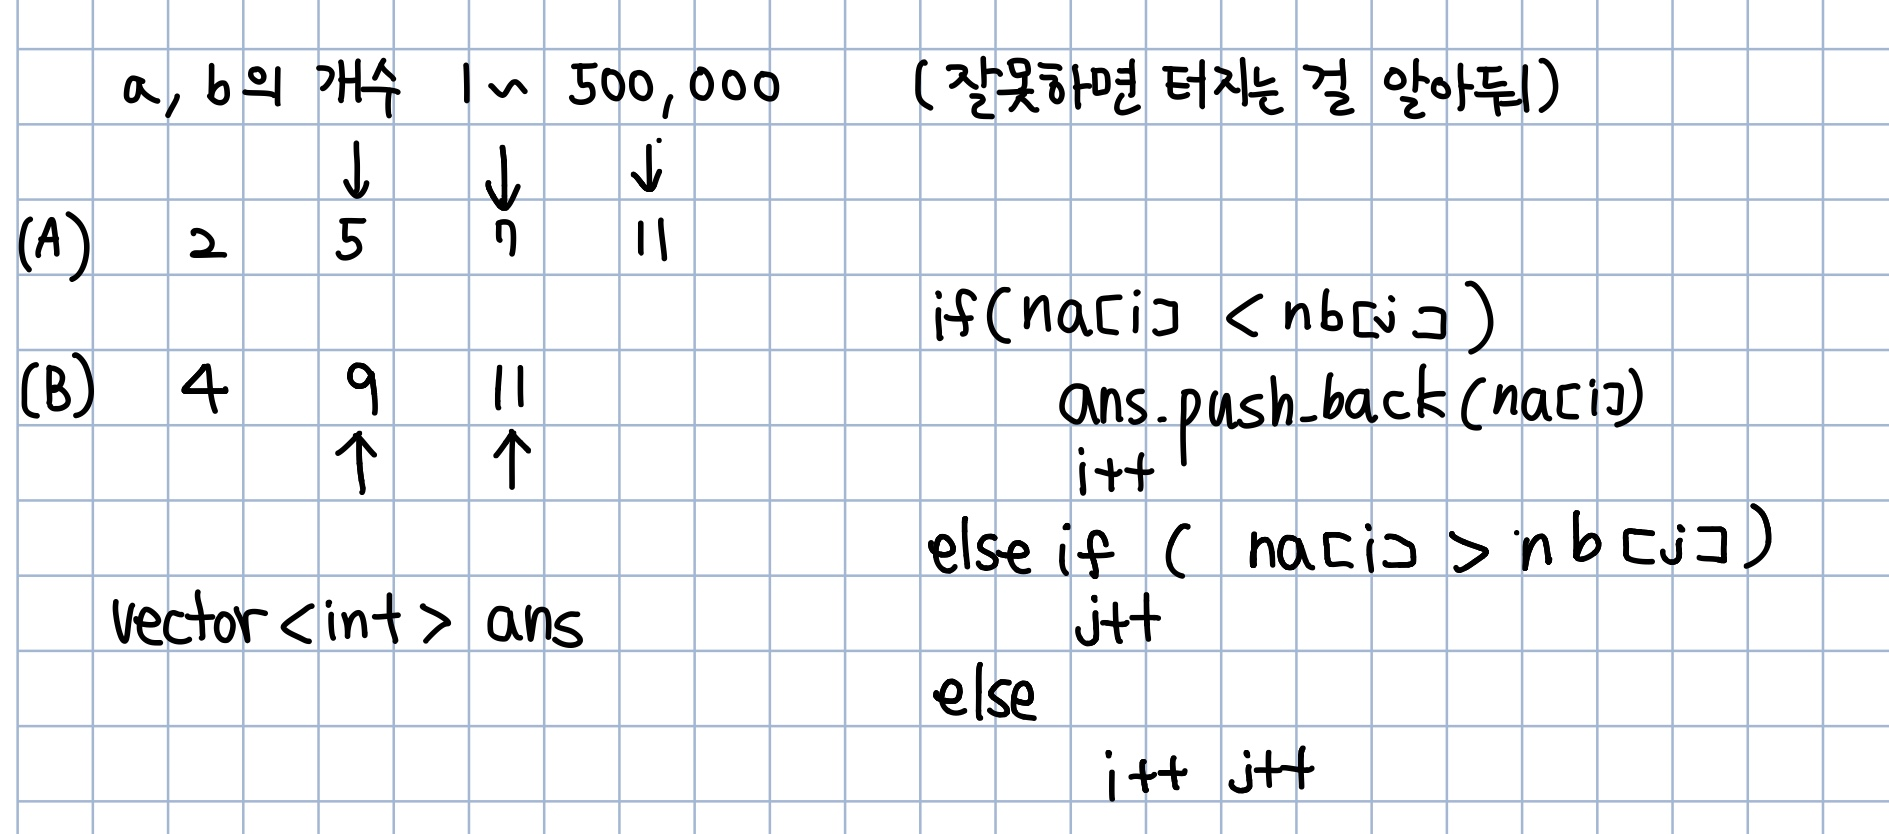 a, b의 개수 1~500,000 (잘못하면 터지는 걸 알아둬)
(A) 2 5 7 11
(B) 4 9 11
vector<int> ans
if(na[i] < nb[j])
ans.push_back(na[i])
i++
else if ( na[i] > nb[j])
j++
else
i++ j++